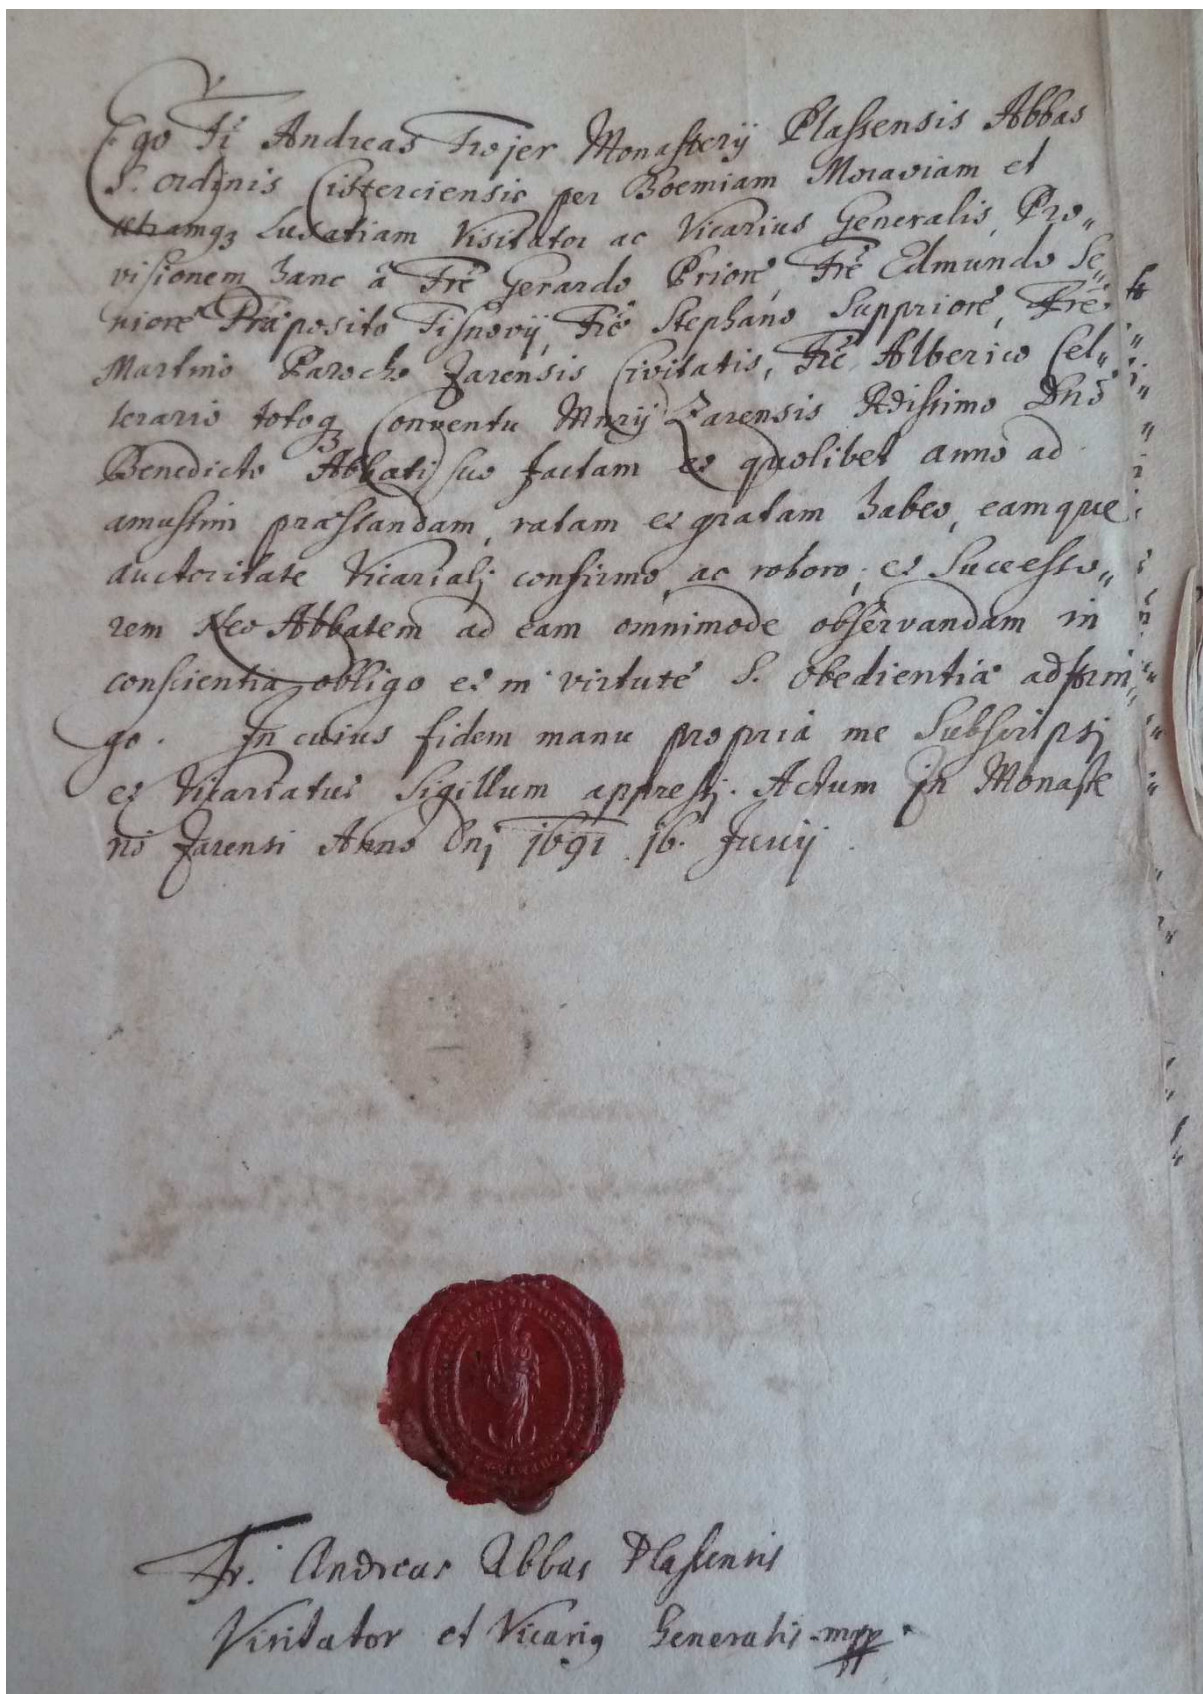 Ego Fr Andreas Trojer Monasterij Plassensis Abbas
S. ordinis Cisterciensis per Boemiam Moraviam et
utramq₃ Lusatiam Visitator ac Vicarius Generalis, Pro„
visionem hanc â Fre Gerardo Priore, Fre Edmundo Se„
niore Præposito Tisnovij, Fre Stephano Suppriore, Fre
Martino Parocho Zarensis Civitatis, Fre Alberico Cel„
lerario totoq₃ Conventu Mnrij Zarensis Rdissimo Dno
Benedicto Abbati suo factam et quolibet anno ad
amussim præstandam, ratam et gratam habeo, eamque
auctoritate Vicarialj confirmo, ac roboro, et Successo„
rem Neo Abbatem ad eam omnimode observandam in
conscientia obligo et in virtute S. obedientiæ adstrin„
go. In cuius fidem manu propria me Subscripsj
et Vicariatus Sigillum appressj. Actum in Monaste
rio Zarensi Anno Dnj 1691 16. Junij
Fr. Andreas Abbas Plassensis
Visitator et Vicariꝰ Generalis mpp